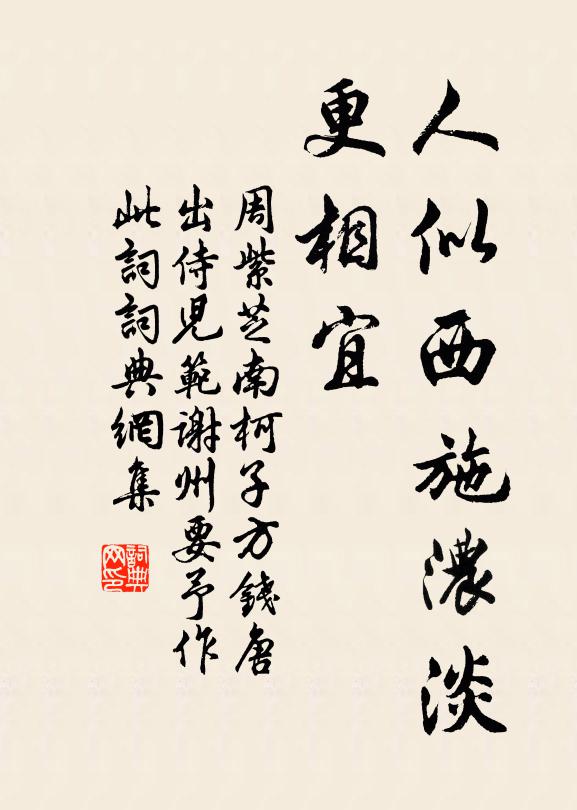 人似西施濃淡
更相宜
周紫芝南柯子方錢唐
出侍兒範謝州要予作
此詞詞典網集
詞典网印